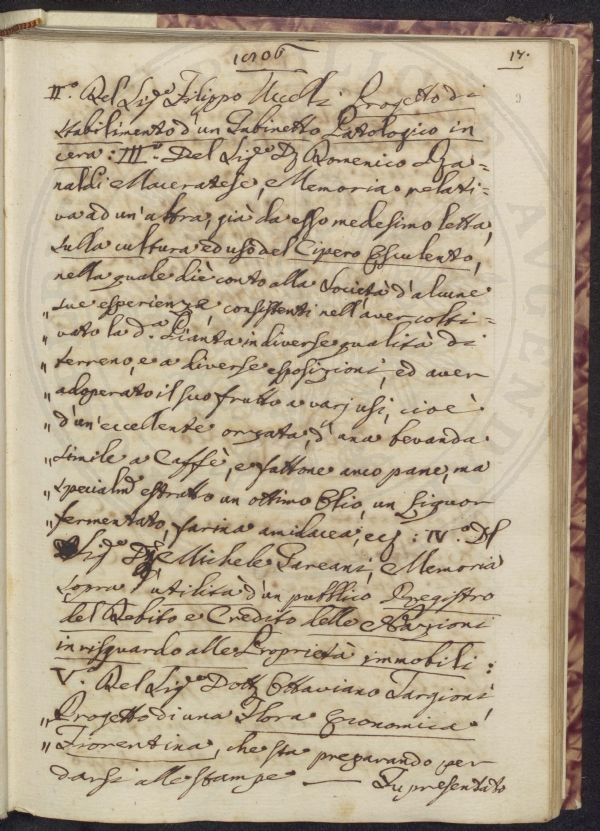 1806
17.
9
II.° Del Sig.e Filippo Uccelli Progetto di
Stabilimento d'un Gabinetto Patologico in
cera: III.° Del Sig.e D. Domenico
naldi Maceratese, Memoria relati-
va ad un'altra, già da esso medesimo letta,
sulla cultura ed uso del Cipero Esculento,
nella quale diè conto alla Società d'alcune
" sue esperienze, consistenti nell'aver colti-
" vato la d.a Pianta in diverse qualità di
" terreno, e a diverse esposizioni, ed aver
" adoperato il suo frutto a varj usi, cioè
" d'un'eccellente orzata, d'una bevanda
" simile a Caffè, e fattone anco pane, ma
" specialm.e estratto un ottimo Olio, un Liquor
" fermentato, farina amidacea, ec: IV.° Del
Sig.e D. Michele, Memoria
sopra l'utilità d'un pubblico Registro
del Debito e Credito delle Nazioni
in risguardo alle Proprietà immobili:
V.° Del Sig.e Dott. Ottaviano Targioni
" Progetto di una Flora Economica
" Fiorentina, che sta preparando per
darsi alle stampe — Fu presentato